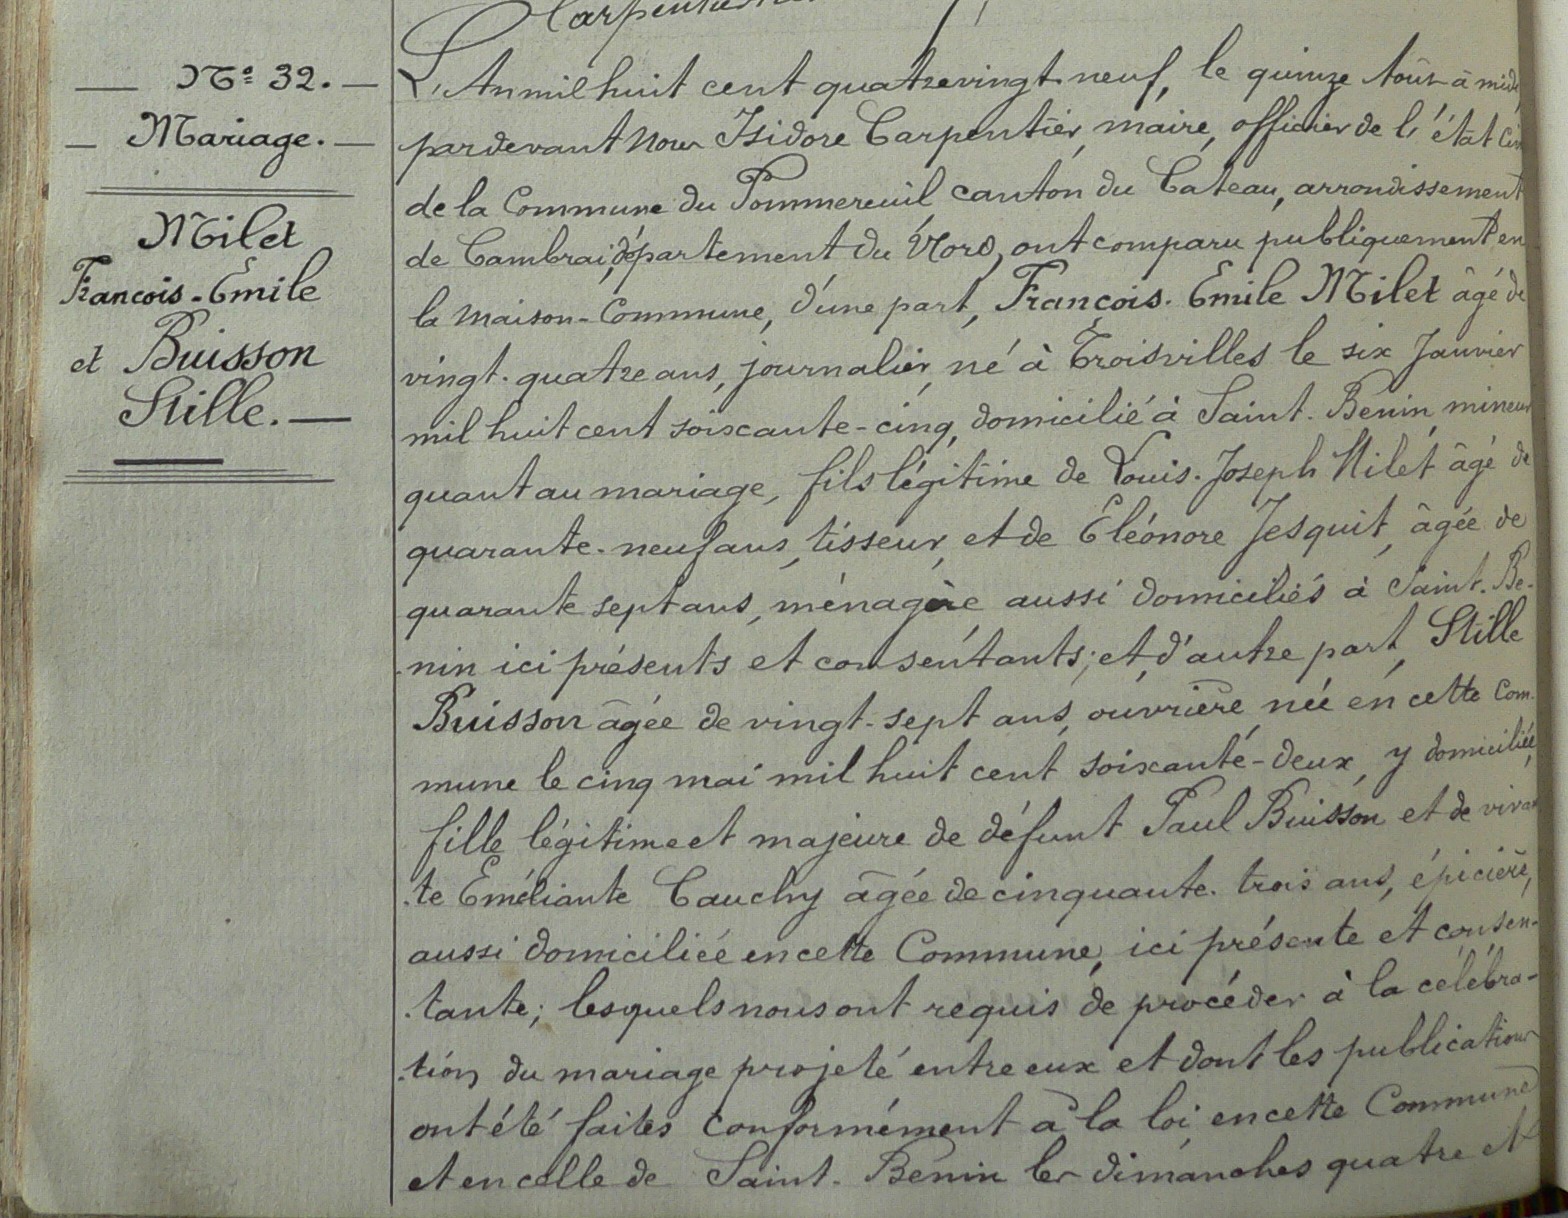 Carpentier
N° 32.
Mariage.
Milet
Francois-Emile
et Buisson
Stille.
L'An mil huit cent quatrevingt-neuf, le quinze Août à midi,
pardevant Nous Isidore Carpentier, maire, officier de l'état Civ
de la Commune du Pommereuil canton du Cateau, arrondissement
de Cambrai, département du Nord, ont comparu publiquement en
la Maison-Commune, d'une part, François-Emile Milet âgé de
vingt-quatre ans, journalier, né à Troisvilles le six Janvier
mil huit cent soixante-cinq, domicilié à Saint-Benin, mineur
quant au mariage, fils légitime de Louis-Joseph Milet âgé de
quarante-neuf ans, tisseur, et de Eléonore Jesquit, âgée de
quarante sept ans, ménagère, aussi domiciliés à Saint-Be-
nin ici présents et consentants; et d'autre part, Stille
Buisson âgée de vingt-sept ans, ouvrière, née en cette Com-
mune le cinq mai mil huit cent soixante-deux, y domiciliée,
fille légitime et majeure de défunt Paul Buisson et de vivan
-te Eméliante Cauchy âgée de cinquante-trois ans, épicière,
aussi domiciliée en cette Commune, ici présente et consen-
-tante; lesquels nous ont requis de procéder à la célébra-
-tion du mariage projeté entre eux et dont les publications
ont été faites conformément à la loi en cette Commune
et en celle de Saint-Benin les dimanches quatre et